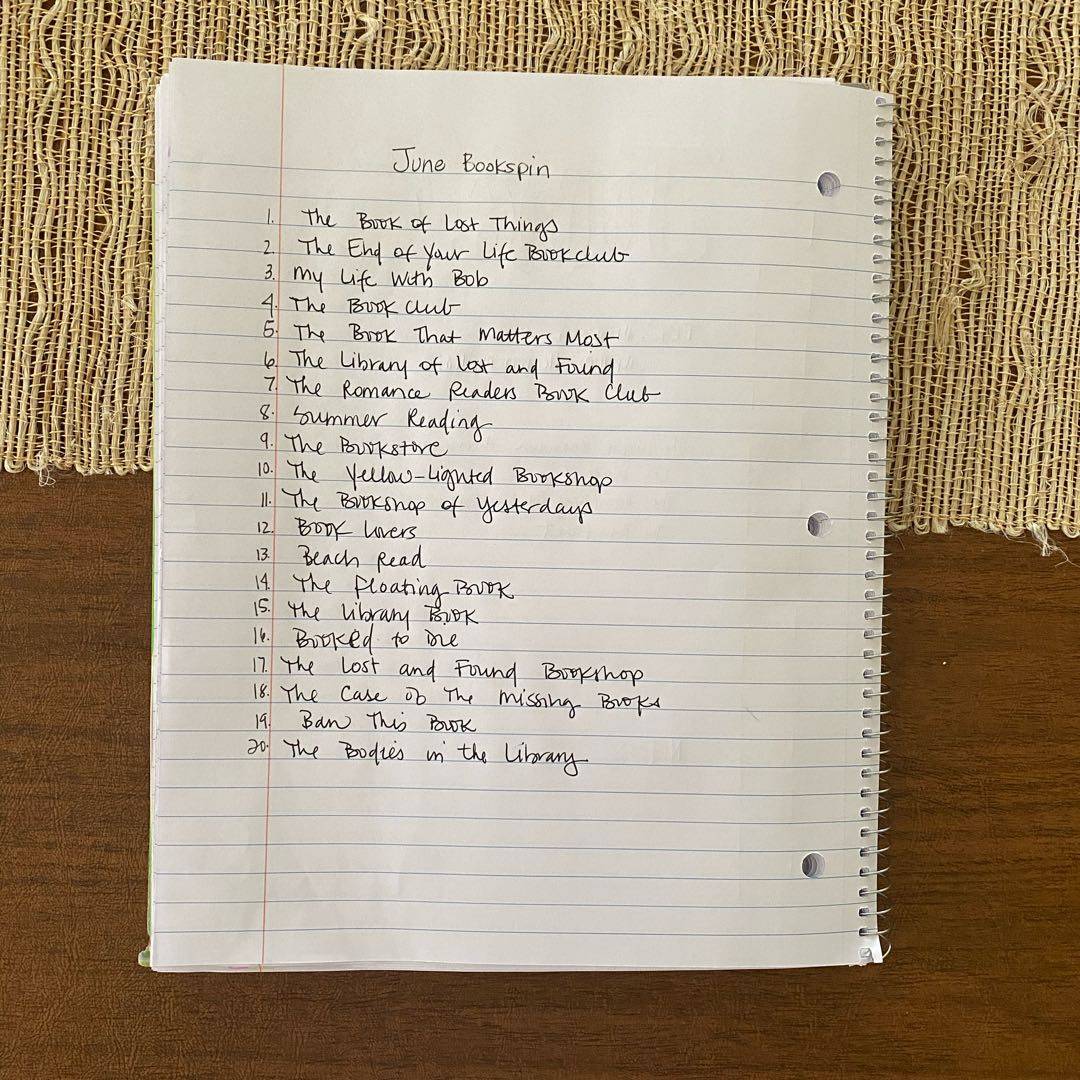 June Bookspin
1. The Book of Lost Things
2. The End of Your Life Bookclub
3. My Life With Bob
4. The Book Club
5. The Book That Matters Most
6. The Library of Lost and Found
7. The Romance Readers Book Club
8. Summer Reading
9. The Bookstore
10. The Yellow-Lighted Bookshop
11. The Bookshop of Yesterdays
12. Book Lovers
13. Beach Read
14. The Floating Book
15. The Library Book
16. Booked to Die
17. The Lost and Found Bookshop
18. The Case of The Missing Books
19. Ban This Book
20. The Bodies in the Library